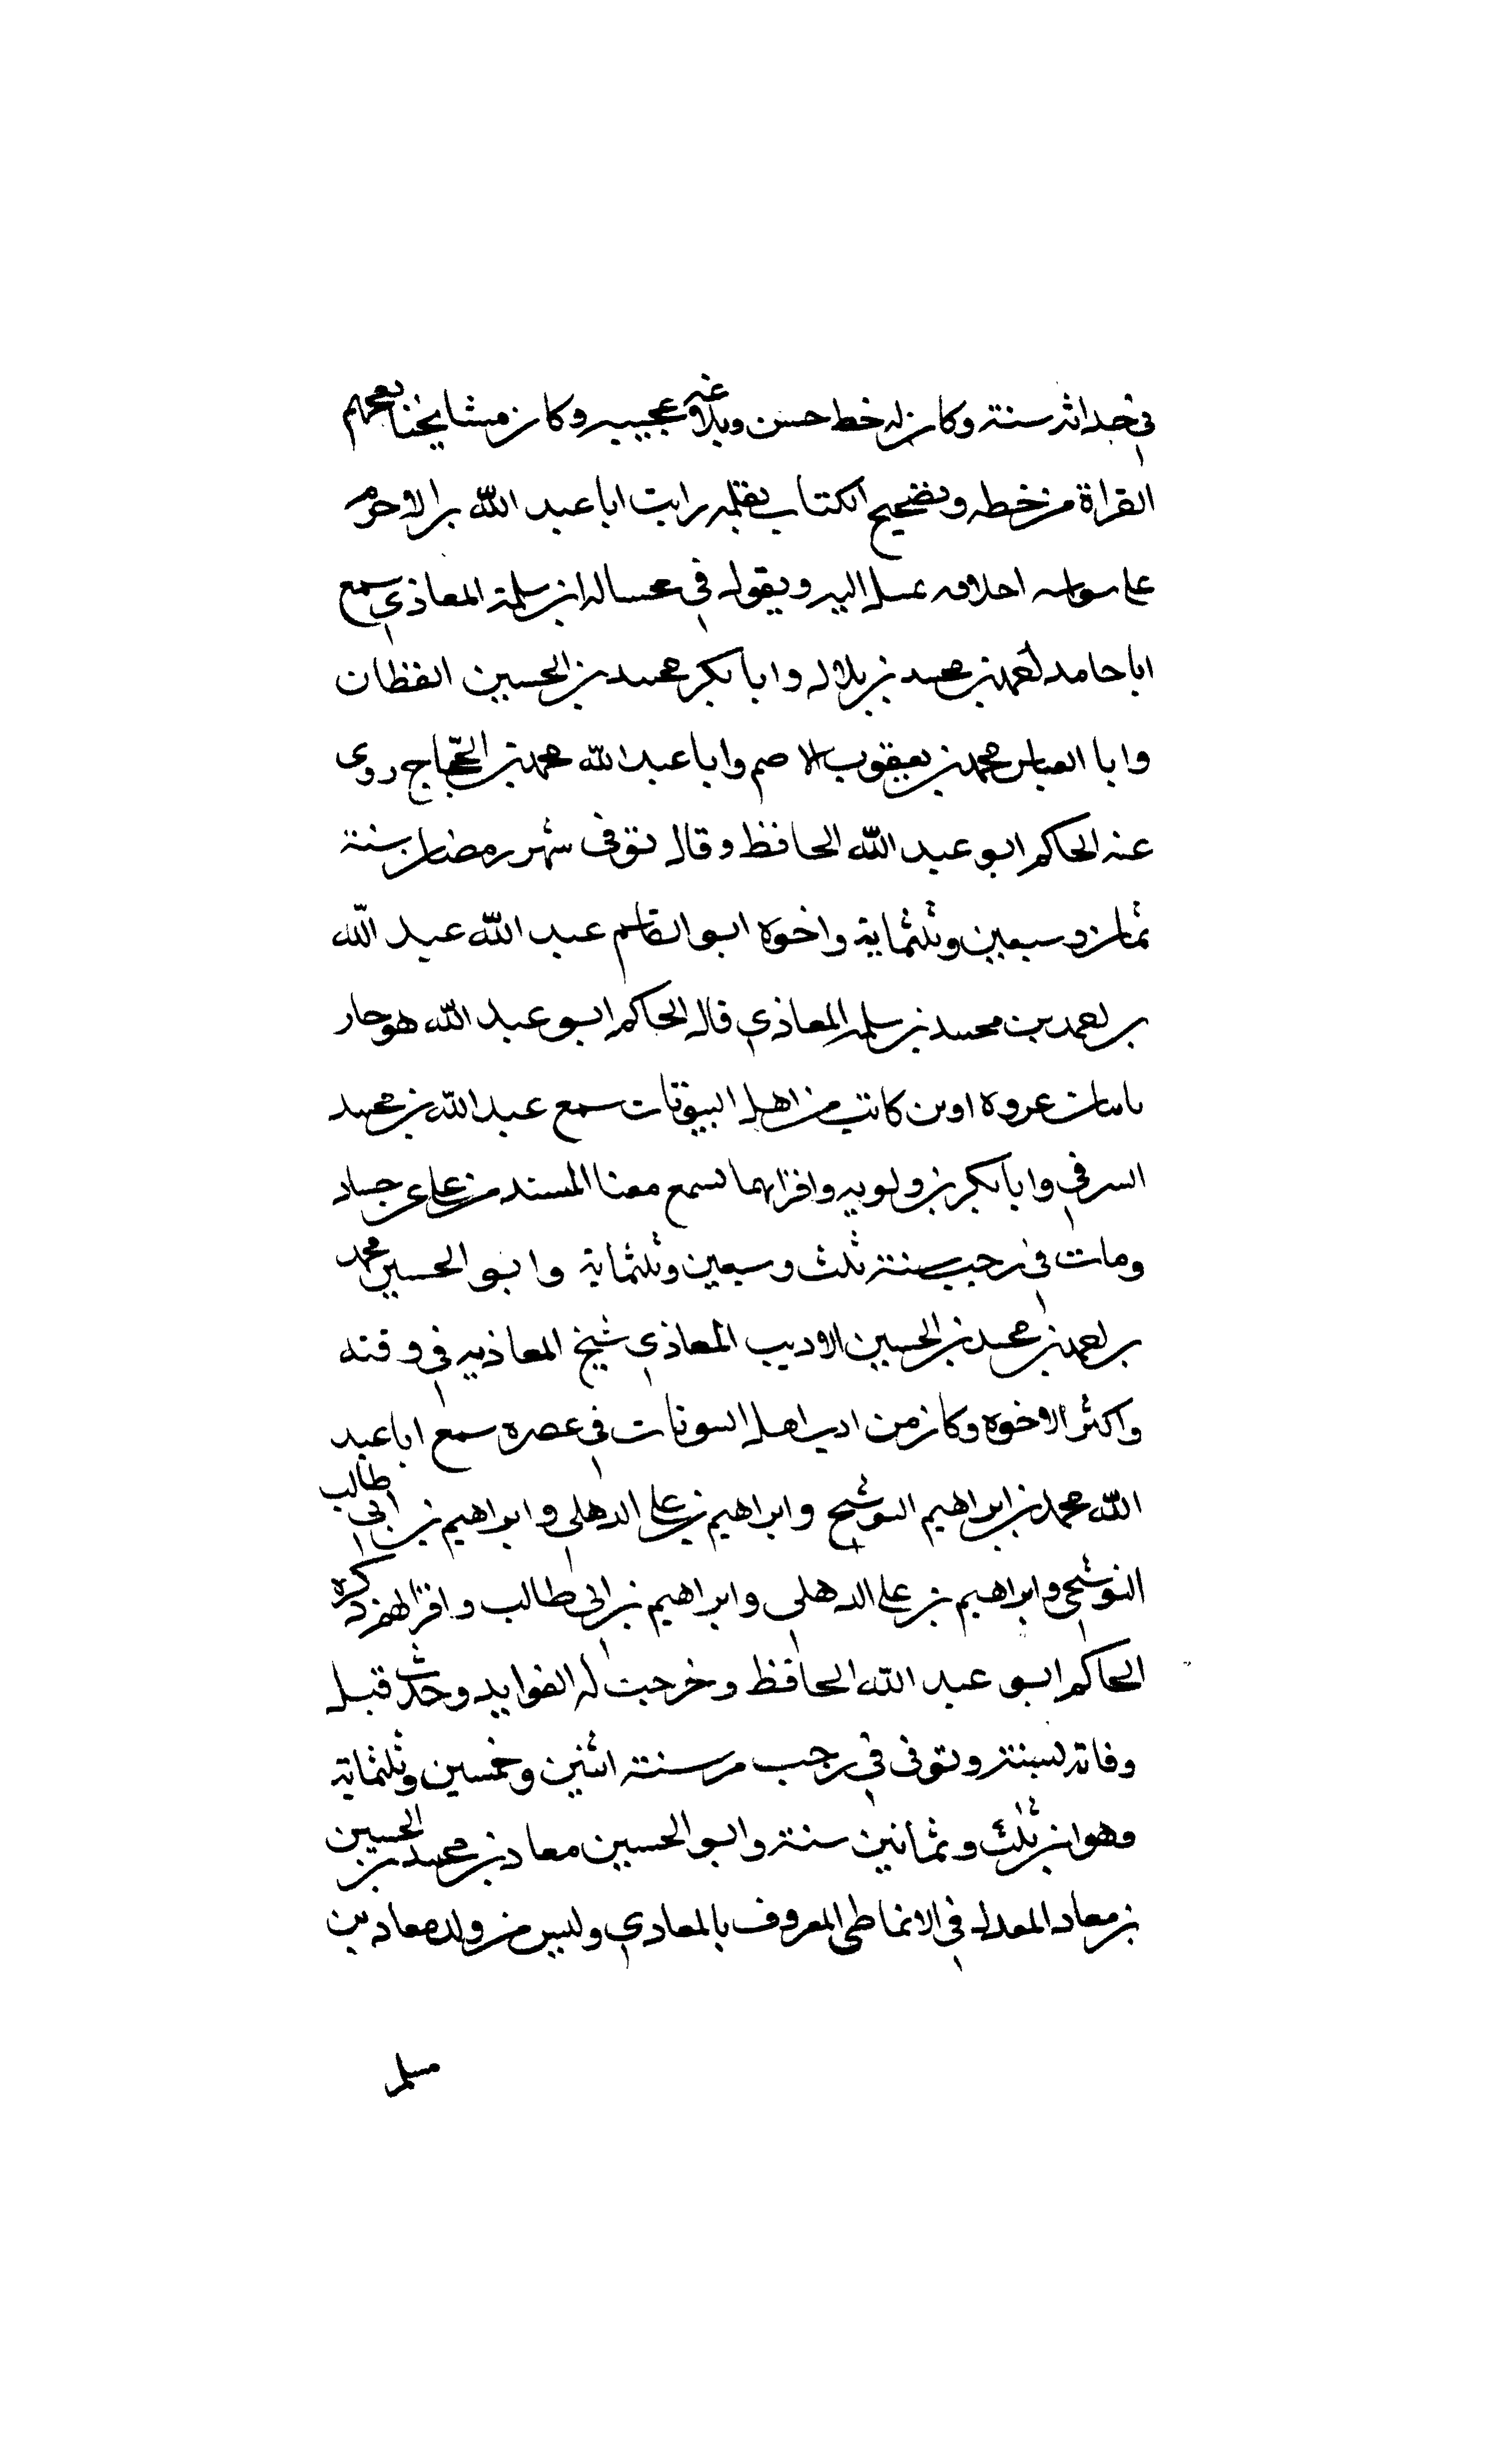 في حداثه سنته وكان له خط حسن وبلاغة عجيبه وكان مشايخنا يعجبهم
القراة من خطه وتصحيح الكتاب بقلمه رايت ابا عبد الله بن الاخرم
على اخلاقه يميل اليه ويقول في ابن سلمة المعاذي سمع
ابا حامد احمد بن محمد بن بلال وابا بكر محمد بن الحسين القطان
وابا العباس محمد بن يعقوب الاصم وابا عبد الله محمد بن الحجاج روى
عنه الحاكم ابو عبد الله الحافظ وقال توفى شهر رمضان سنة
ثمان وسبعين وثلثماية واخوه ابو القاسم عبد الله عبيد الله
بن احمد بن محمد بن سلمه المعاذي قال الحاكم ابو عبد الله هو جار
عروه كاتب من اهل البيوتات سمع عبد الله بن محمد
السرفي وابا بكر بن ولويه واقرانهما سمع معنا المسند من علي بن حمساد
ومات في رجب سنة ثلث وسبعين وثلثماية وابو الحسين محمد
بن احمد بن محمد بن الحسين الاديب المعاذي شيخ المعاذيه في وقته
واكثر الاخوه وكان من ادب اهل السوتات في عصره سمع ابا عبد
الله محمد بن ابراهيم البوشنجي وابراهيم بن علي الدهلي وابراهيم بن ابي طالب
النوشجي وابراهيم بن علي الدهلي وابراهيم بن ابي طالب واقرانهم ذكره
الحاكم ابو عبد الله الحافظ وخرجت له الفوايد وحدث قبل
وفاته لسنة وتوفى في رجب من سنة اثنين وخمسين وثلثماية
وهو ابن ثلث وثمانين سنة وابو الحسين معاد بن محمد بن الحسين
بن معاد المعدل في الانماطي المعروف بالمعادي وليس من ولد معاد بن
مسلم